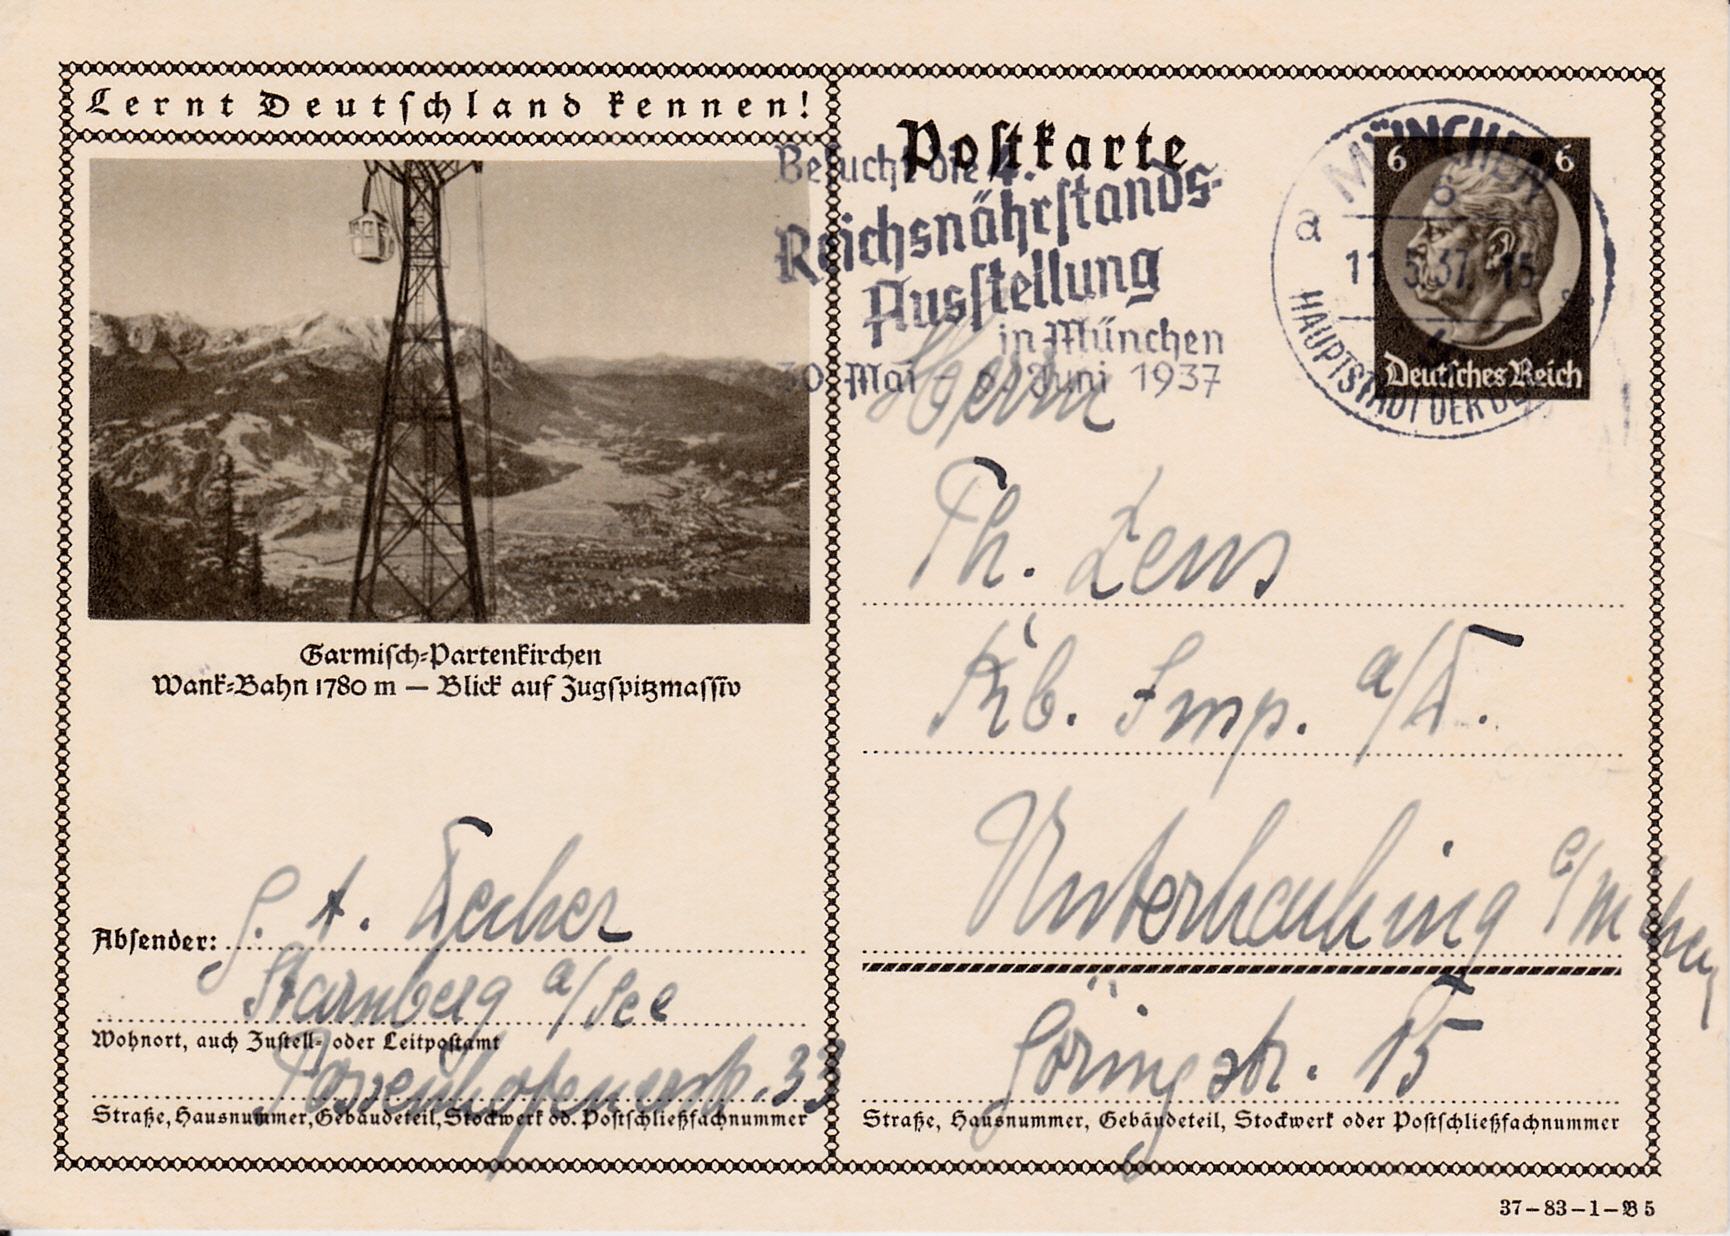 Lernt Deutschland kennen!
Garmisch-Partenkirchen
Wank-Bahn 1780 m — Blick auf Zugspitzmassiv
Absender:
Starnberg a/See
Wohnort, auch Zustell- oder Leitpostamt
Possenhofenerstr. 33
Straße, Hausnummer, Gebäudeteil, Stockwerk od. Postschließfachnummer
Postkarte
Besucht die 4.
Reichsnährstands-
Ausstellung
in München
30. Mai - 6. Juni 1937
MÜNCHEN
a
5.37. 15
HAUPTSTADT DER
6 6
Deutsches Reich
Herrn
Th.
Imp.
Unterhaching
Göringstr. 15
Straße, Hausnummer, Gebäudeteil, Stockwerk oder Postschließfachnummer
37-83-1-B 5